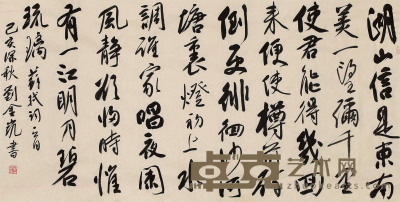 湖山信是東南
美一望彌千里
使君能得幾回
来便使樽前醉
倒更徘徊沙河
塘裏燈初上水
調誰家唱夜闌
風靜欲歸時惟
有一江明月碧
琉璃 蘇軾詞一首
己亥深秋劉金凱書